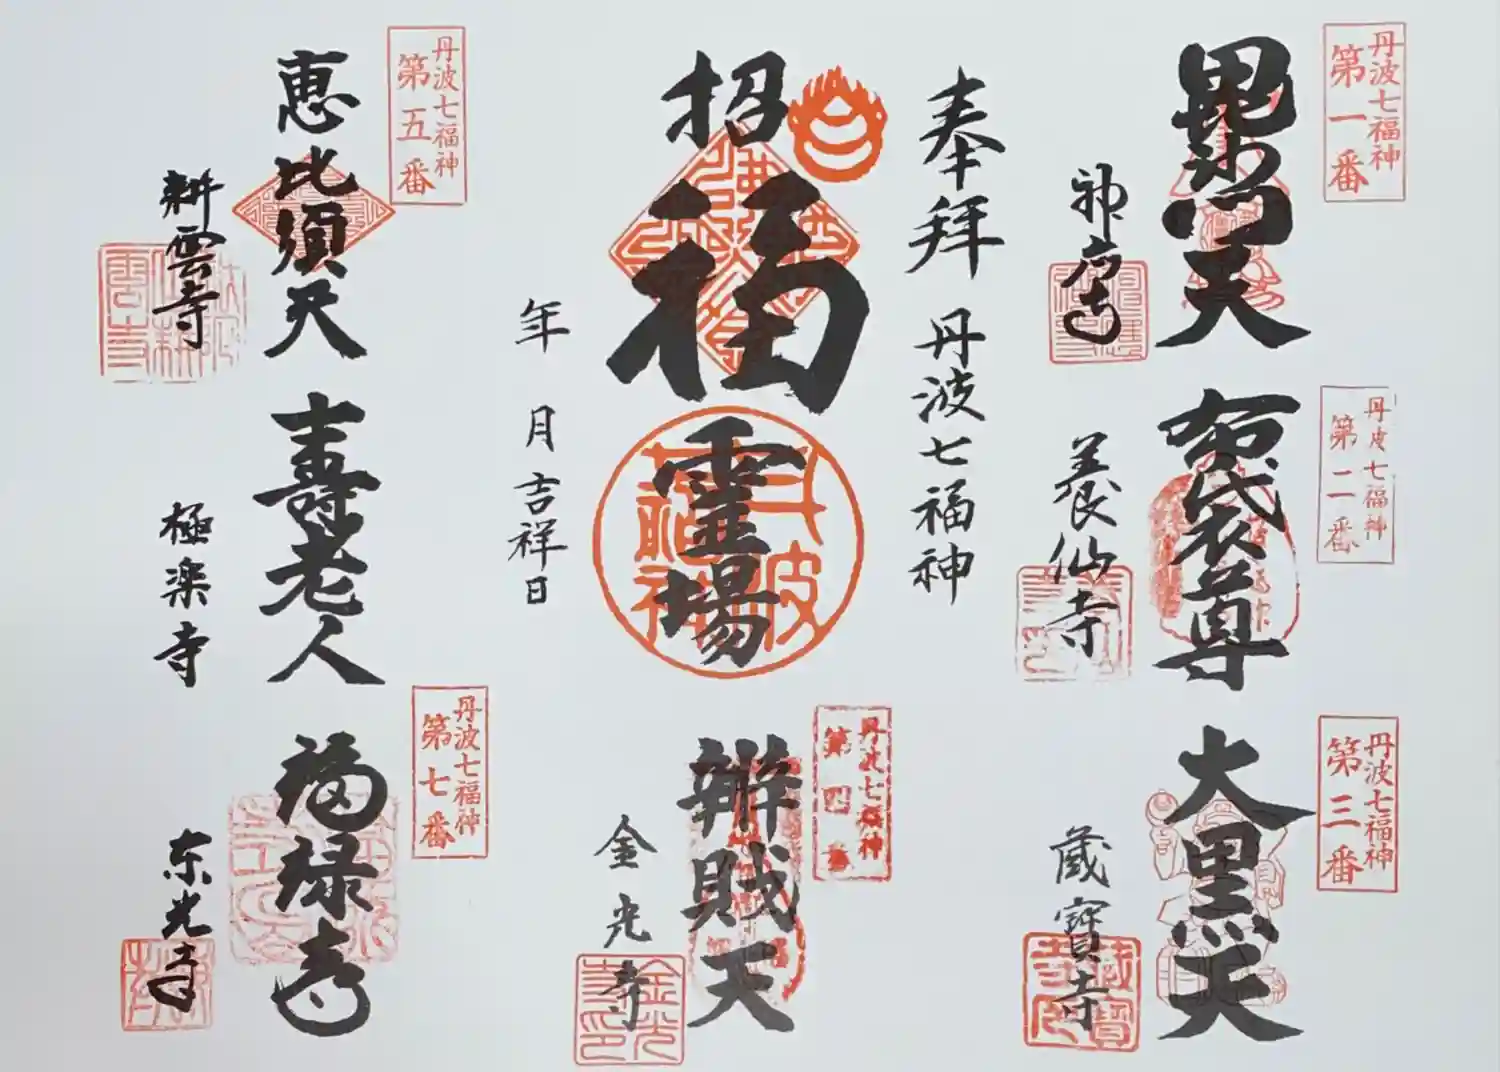 丹波七福神
第一番
毘沙門天
神応寺
丹波七福神
第二番
布袋尊
養仙寺
丹波七福神
第三番
大黒天
蔵寶寺
蔵寶寺印
奉拝 丹波七福神
招福霊場
丹波七福神
年 月吉祥日
丹波七福神
第四番
辨財天
金光寺
金光寺印
丹波七福神
第五番
恵比須天
耕雲寺
壽老人
極楽寺
丹波七福神
第七番
福禄寿
东光寺